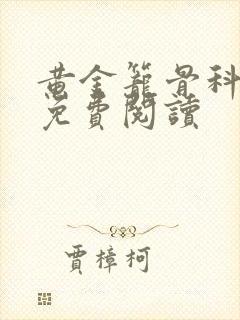 黄金籠骨科
免費閱讀
賈樟柯